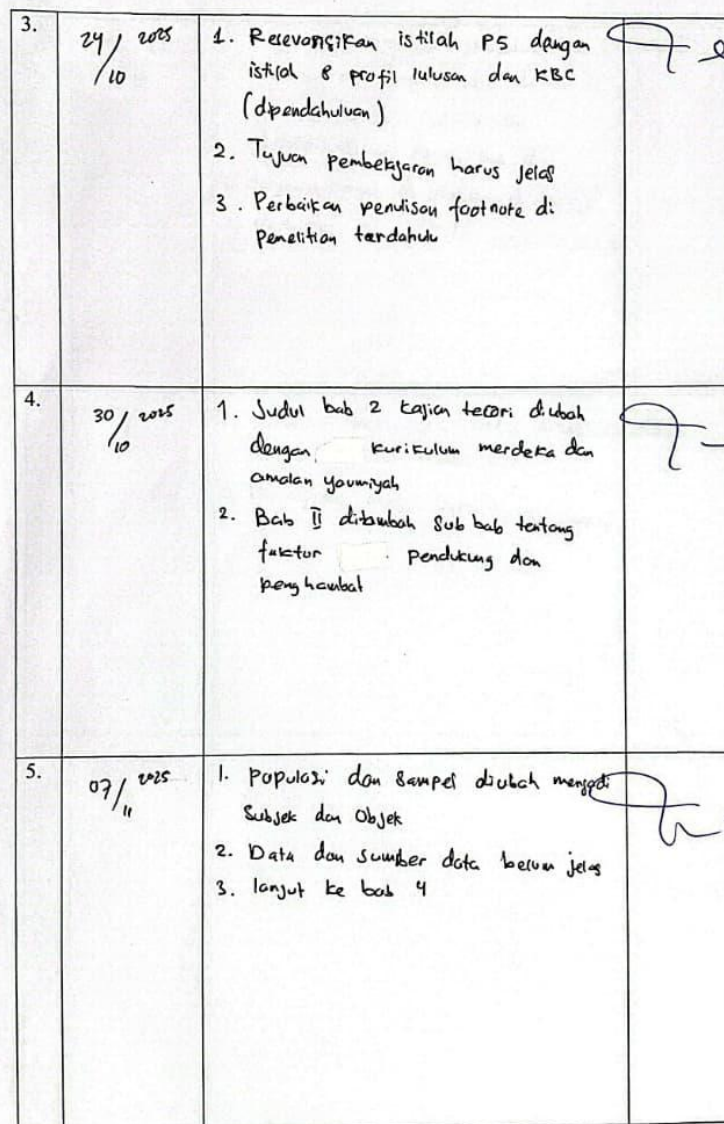 3.
24/10 2025
1. Relevansikan istilah P5 dengan
istilah 8 profil lulusan dan KBC
(dipendahuluan)
2. Tujuan pembelajaran harus jelas
3. Perbaikan penulisan footnote di
penelitian terdahulu
4.
30/10 2025
1. Judul bab 2 kajian teori diubah
dengan kurikulum merdeka dan
amalan yaumiyah
2. Bab II ditambah sub bab tentang
faktor pendukung dan
penghambat
5.
07/11 2025
1. Populasi dan sampel diubah menjadi
Subjek dan Objek
2. Data dan sumber data belum jelas
3. lanjut ke bab 4